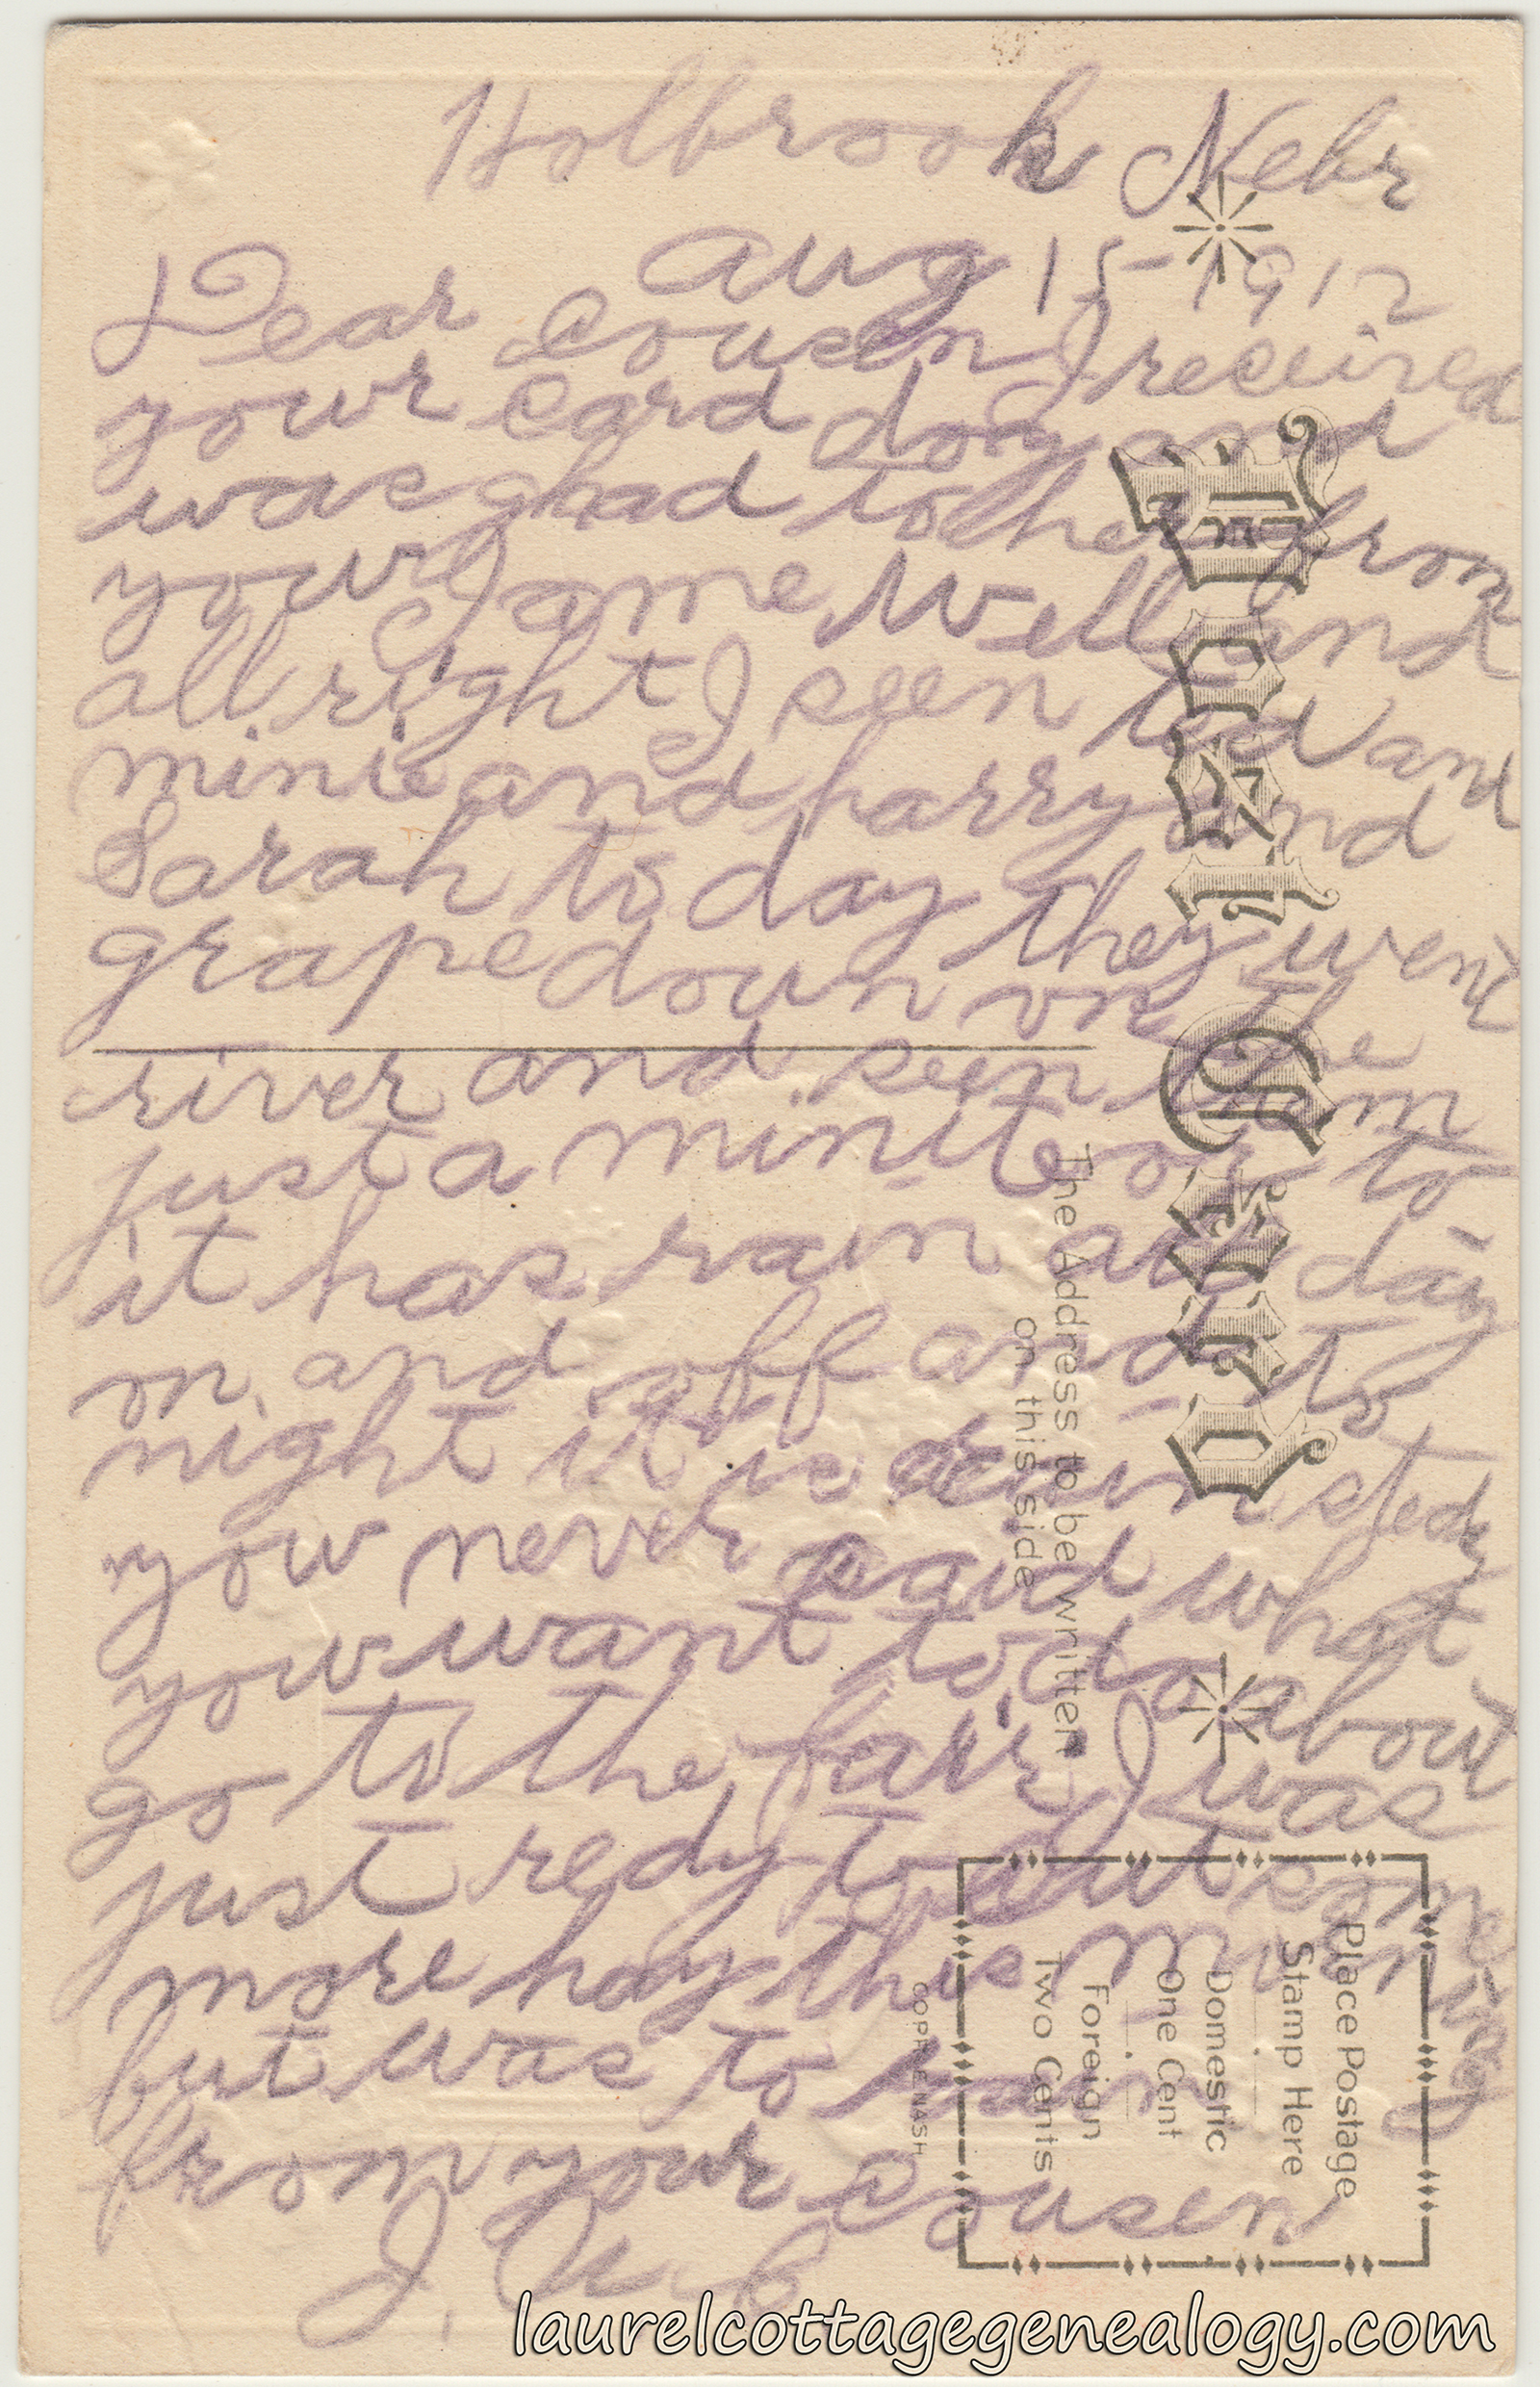 Holbrook Nebr
Aug 15-1912
Dear Cousen I received
your card doy and
was glad to her from
your I ame Well and
all right I seen ted and
minie and harry and
Sarah to day they went
grape doun on the
river and seen them
just a minite or to
it has rain all day
on and off and to
night it is down stedy
you never said what
you want to do about
go to the fair I was
just redy to cut some
more hay this morning
but was to rain
from your Cousen
J. W. C
Post Card
The Address to be written
on this side
Place Postage
Stamp Here
Domestic
One Cent
Foreign
Two Cents
COPR. E NASH
laurelcottagegenealogy.com